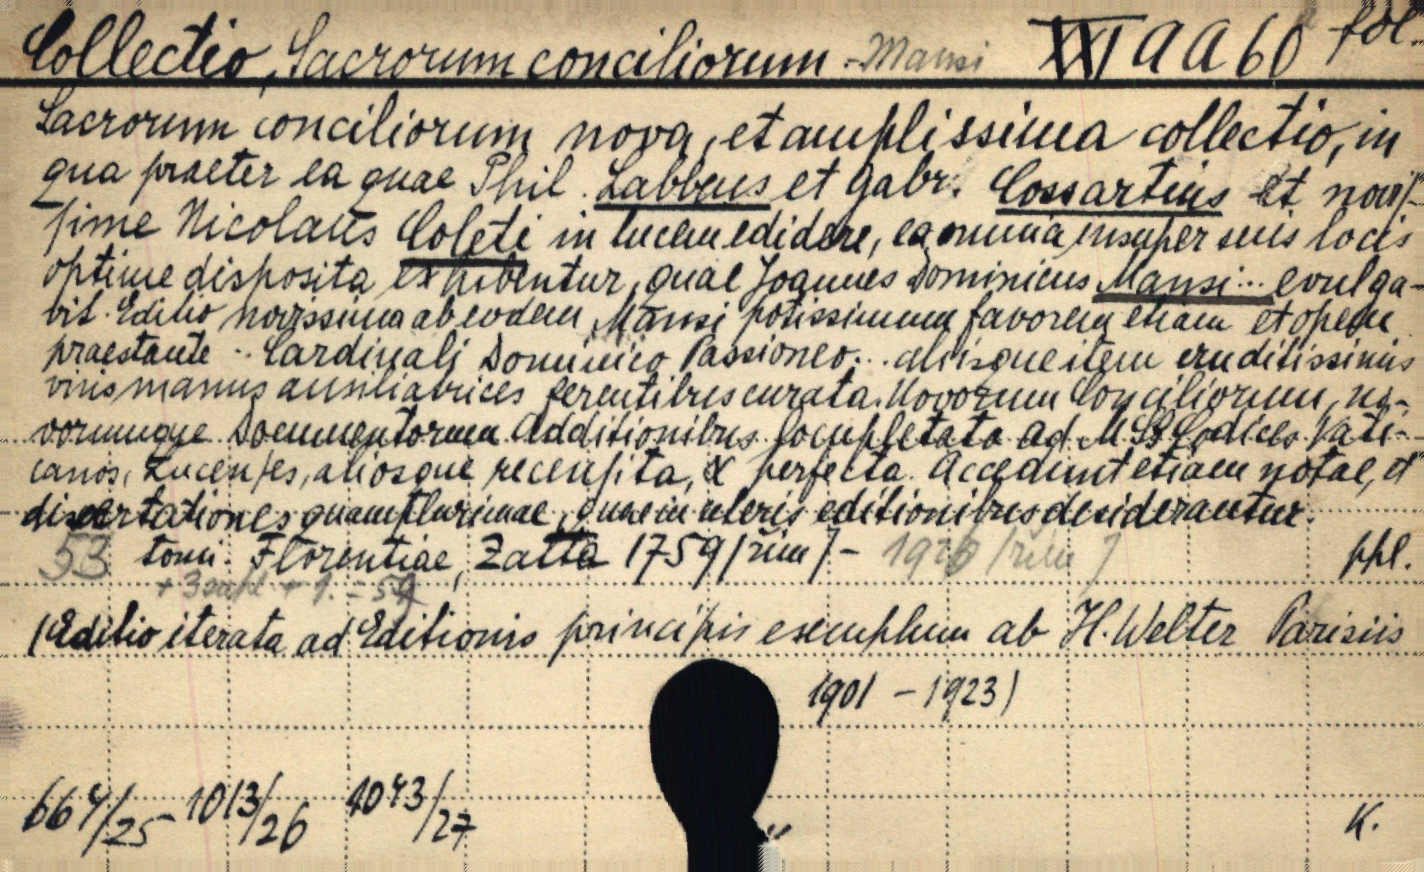 Collectio, Sacrorum conciliorum - Mansi XXI a a 60 fol.
Sacrorum conciliorum nova, et amplissima collectio, in
qua praeter ea quae Phil. Labbeus et Gabr. Cossartius et novis-
sime Nicolaus Coleti in lucem edidere, ea omnia insuper suis locis
optime disposita exhibentur, quae Joannes Dominicus Mansi... evulga-
vit. Editio novissima ab eodem Mansi potissimum favorem etiam et opem
praestante .. Cardinali Dominico Passioneo... aliisque item eruditissimis
viris manus auxiliatrices ferentibus curata. Novorum Conciliorum, no-
vorumque Documentorum Additionibus locupletata ad MSS Codices Vati-
canos, Lucenses, aliosque recensita, & perfecta. Accedunt etiam notae, et
dissertationes quamplurimae, quae in ceteris editionibus desiderantur.
53 tomi. Florentiae, Zatta 1759 [rím] - 1926 [rím] ppl.
+ 3 + 1. = 59
(Editio iterata ad Editionis principis exemplum ab H. Welter Parisiis
1901 - 1923)
664/25 1013/26 1043/27
K.